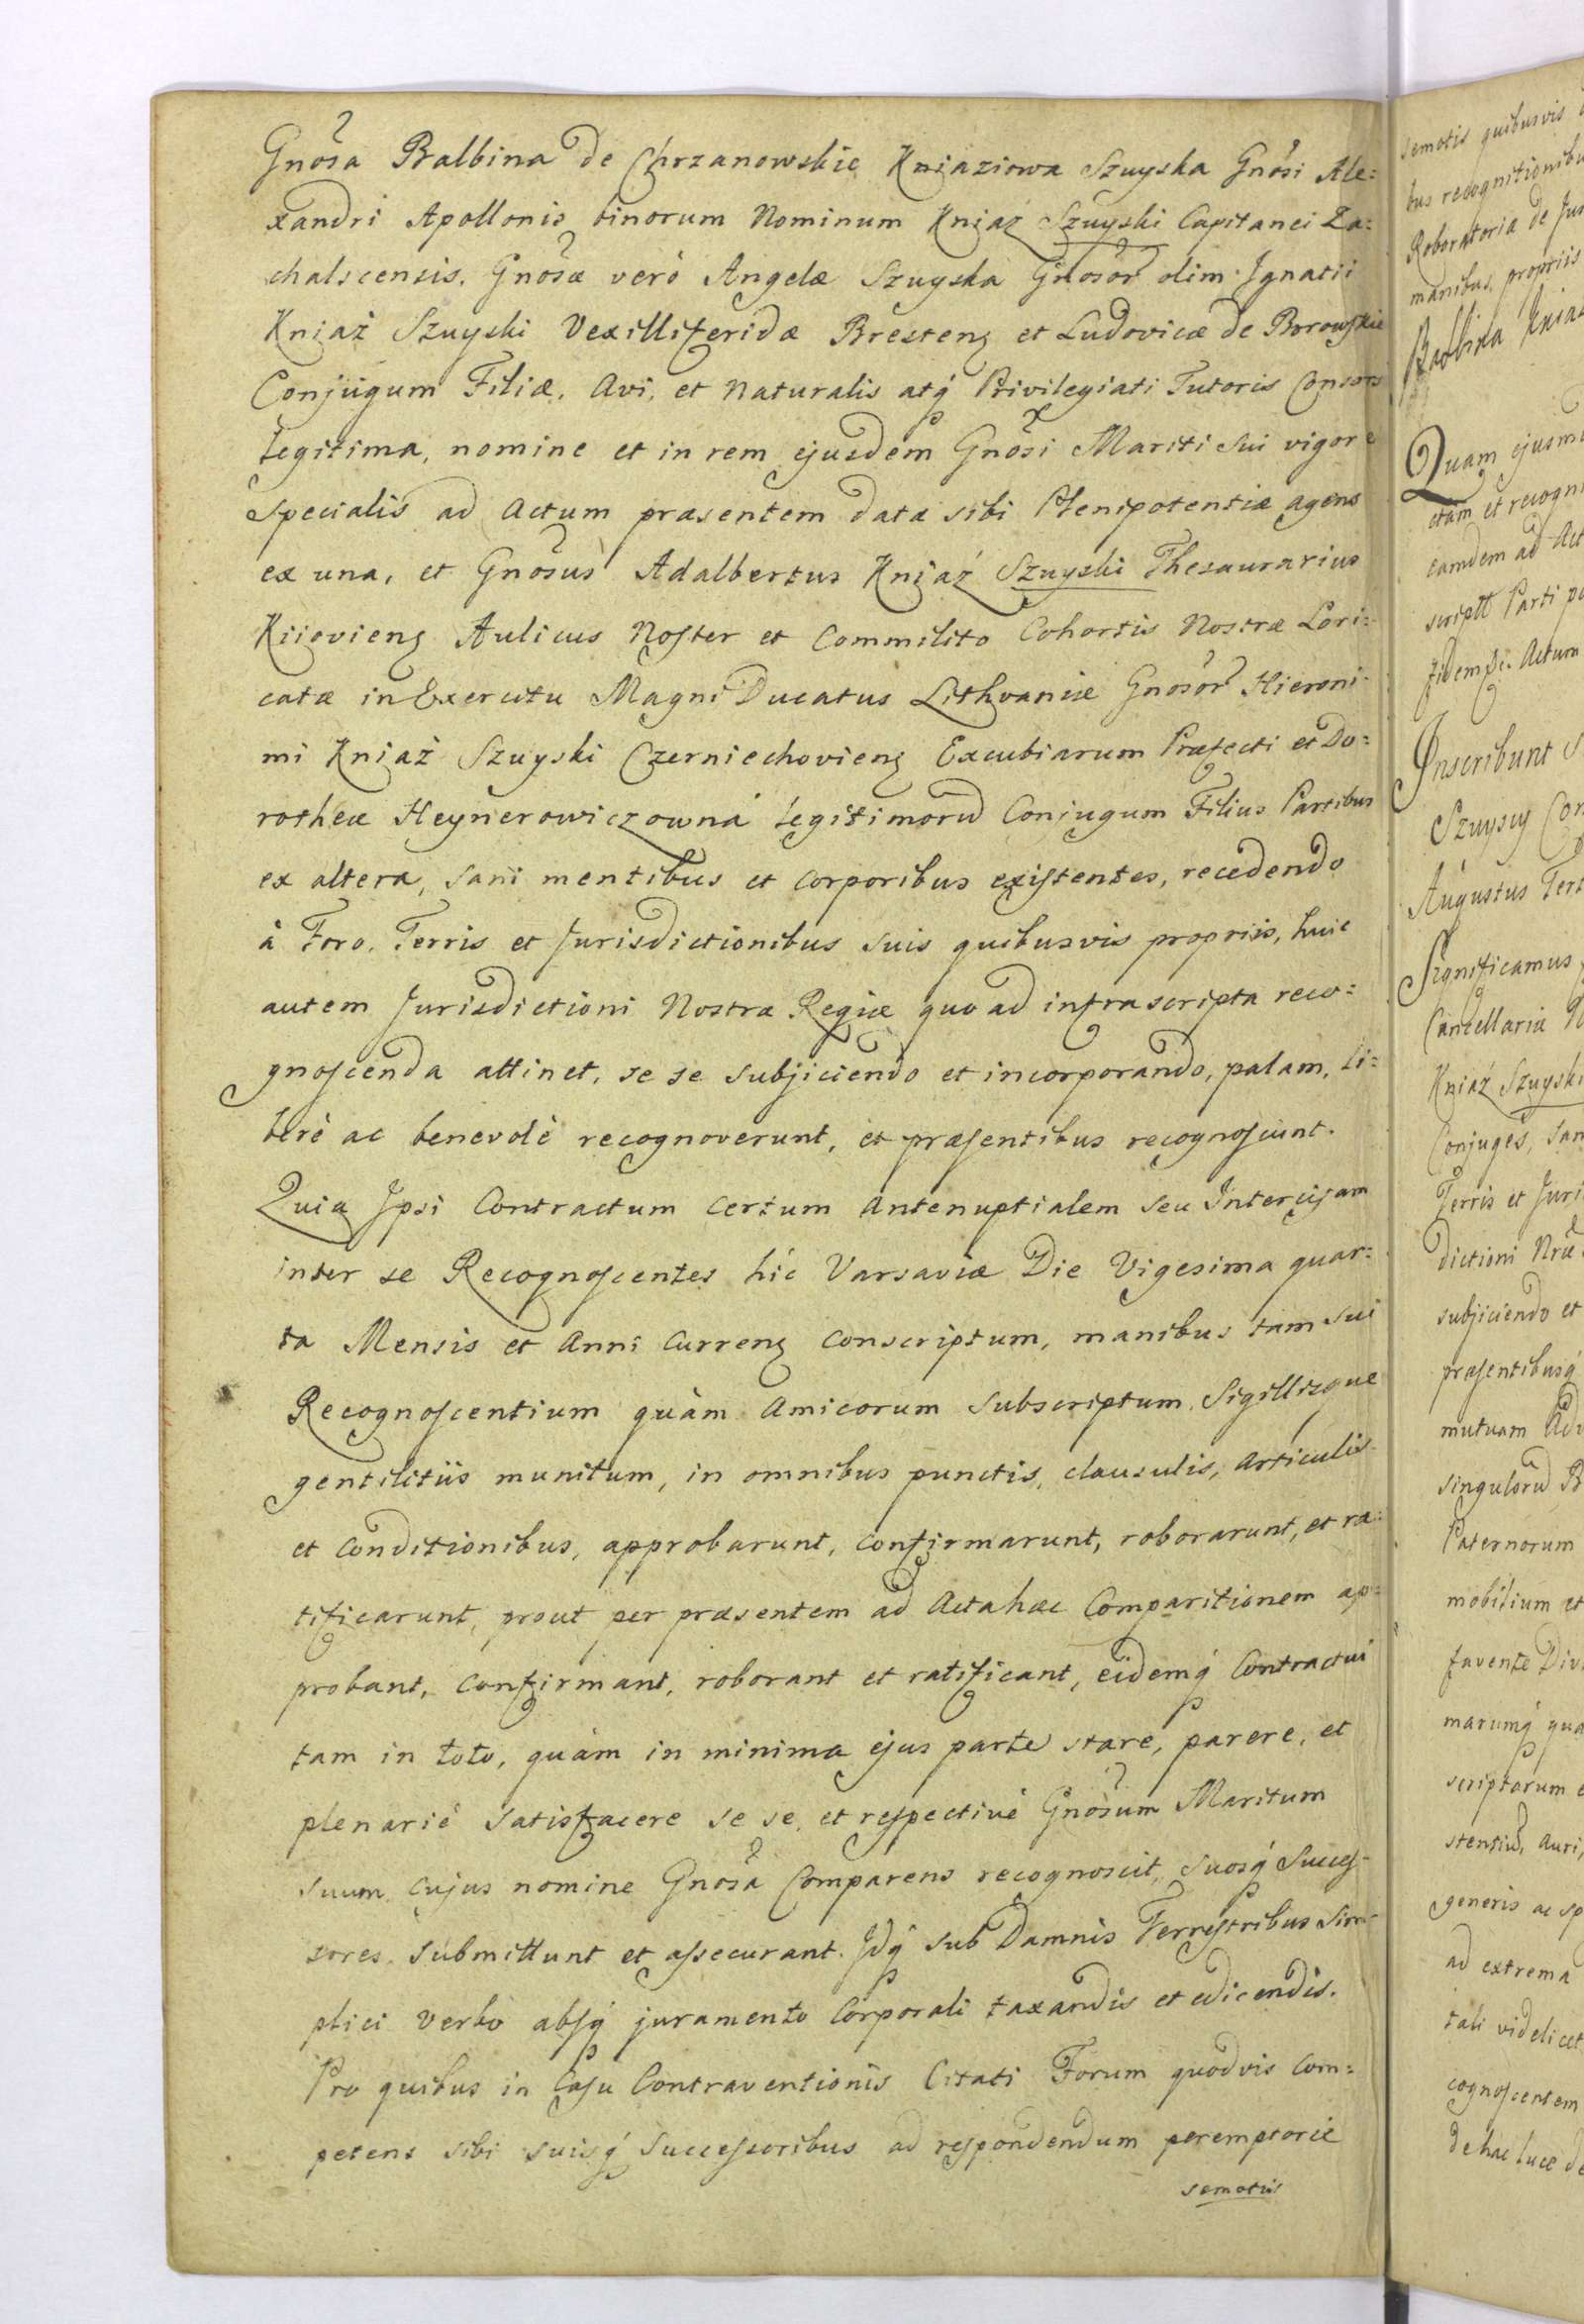 Gnosa Balbina de Chrzanowskie Kniaziowa Szuyska Gnosi Ale=
xandri Apollonis binorum Nominum Kniaź Szuyski Capitanei Za=
chalscensis. Gnosæ verò Angelæ Szuyska Gnosor olim Ignatii
Kniaź Szuyski Vexilliferidæ Bresteng et Ludovicæ de Borowskie
Conjugum Filiæ, Avi, et Naturalis atq́ Privilegiati Tutoris Consors
Legitima, nomine et in rem ejusdem Gnosi Mariti sui vigore
Specialis ad Actum præsentem data sibi Plenipotentiæ agens
ex una, et Gnosus Adalbertus Kniaź Szuyski Thesaurarius
Kiiovieng Aulicus Noster et Commilito Cohortis Nostræ Lori=
catæ in Exercitu Magni Ducatus Lithvaniæ Gnosor Hieroni=
mi Kniaź Szuyski Czerniechovieng Excubiarum Præfecti et Do=
rotheæ Heynerowiczowna legitimorũ Conjugum Filius Partibus
ex altera, sani mentibus et corporibus existentes, recedendo
à Foro, Terris et Jurisdictionibus suis quibusvis propriis, huic
autem Jurisdictioni Nostra Regiæ quo ad infrascripta reco=
gnoscenda attinet, se se subjiciendo et incorporando, palam, li=
berè ac benevolè recognoverunt, et præsentibus recognoscunt.
Quia Ipsi Contractum certum Antenuptialem seu Intercisam
inter se Recognoscentes hic Varsaviæ Die Vigesima quar=
ta Mensis et Anni curreng conscriptum, manibus tam sui
Recognoscentium quàm Amicorum subscriptum, Sigillisque
gentilitiis munitum, in omnibus punctis, clausulis, Articulis
et conditionibus, approbarunt, confirmarunt, roborarunt, et ra=
tificarunt, prout per præsentem ad Acta hæc Comparitionem ap=
probant, confirmant, roborant et ratificant, eidemq́ Contractui
tam in toto, quàm in minima ejus parte stare, parere, et
plenariè satisfacere se se, et respectivè Gnosum Maritum
suum, cujus nomine Gnosa Comparens recognoscit, suosq́ Succes-
sores, submittunt et assecurant. Idq́ sub Damnis Terrestribus Sim-
plici verbo absq́ juramento Corporali taxandis et edicendis.
Pro quibus in Casu Contraventionis Citati Forum quodvis com=
petens sibi suisq́ Successoribus ad respondendum peremptorie
semotis
semotis quibusvis
bus recognitionibu
Roboratoria de Jur
manibus propriis
Balbina Kniaź
Quam ejusm
ctam et recogn
eamdem ad Act
script Parti po
fidem &c. Actum
Inscribunt S
Szuyscy Con
Augustus Tert
Significamus
Cancellariæ N
Kniaź Szuyski
Conjuges, san
Terris et Juri
dictioni Nræ
subjiciendo et
præsentibusq́
mutuam Adv
singulorũ B
Paternorum
mobilium et
favente Divi
marumq́ qua
scriptarum e
stentiũ, auri,
generis ac sp
ad extrema
tali videlicet
cognoscentem
de hac luce de